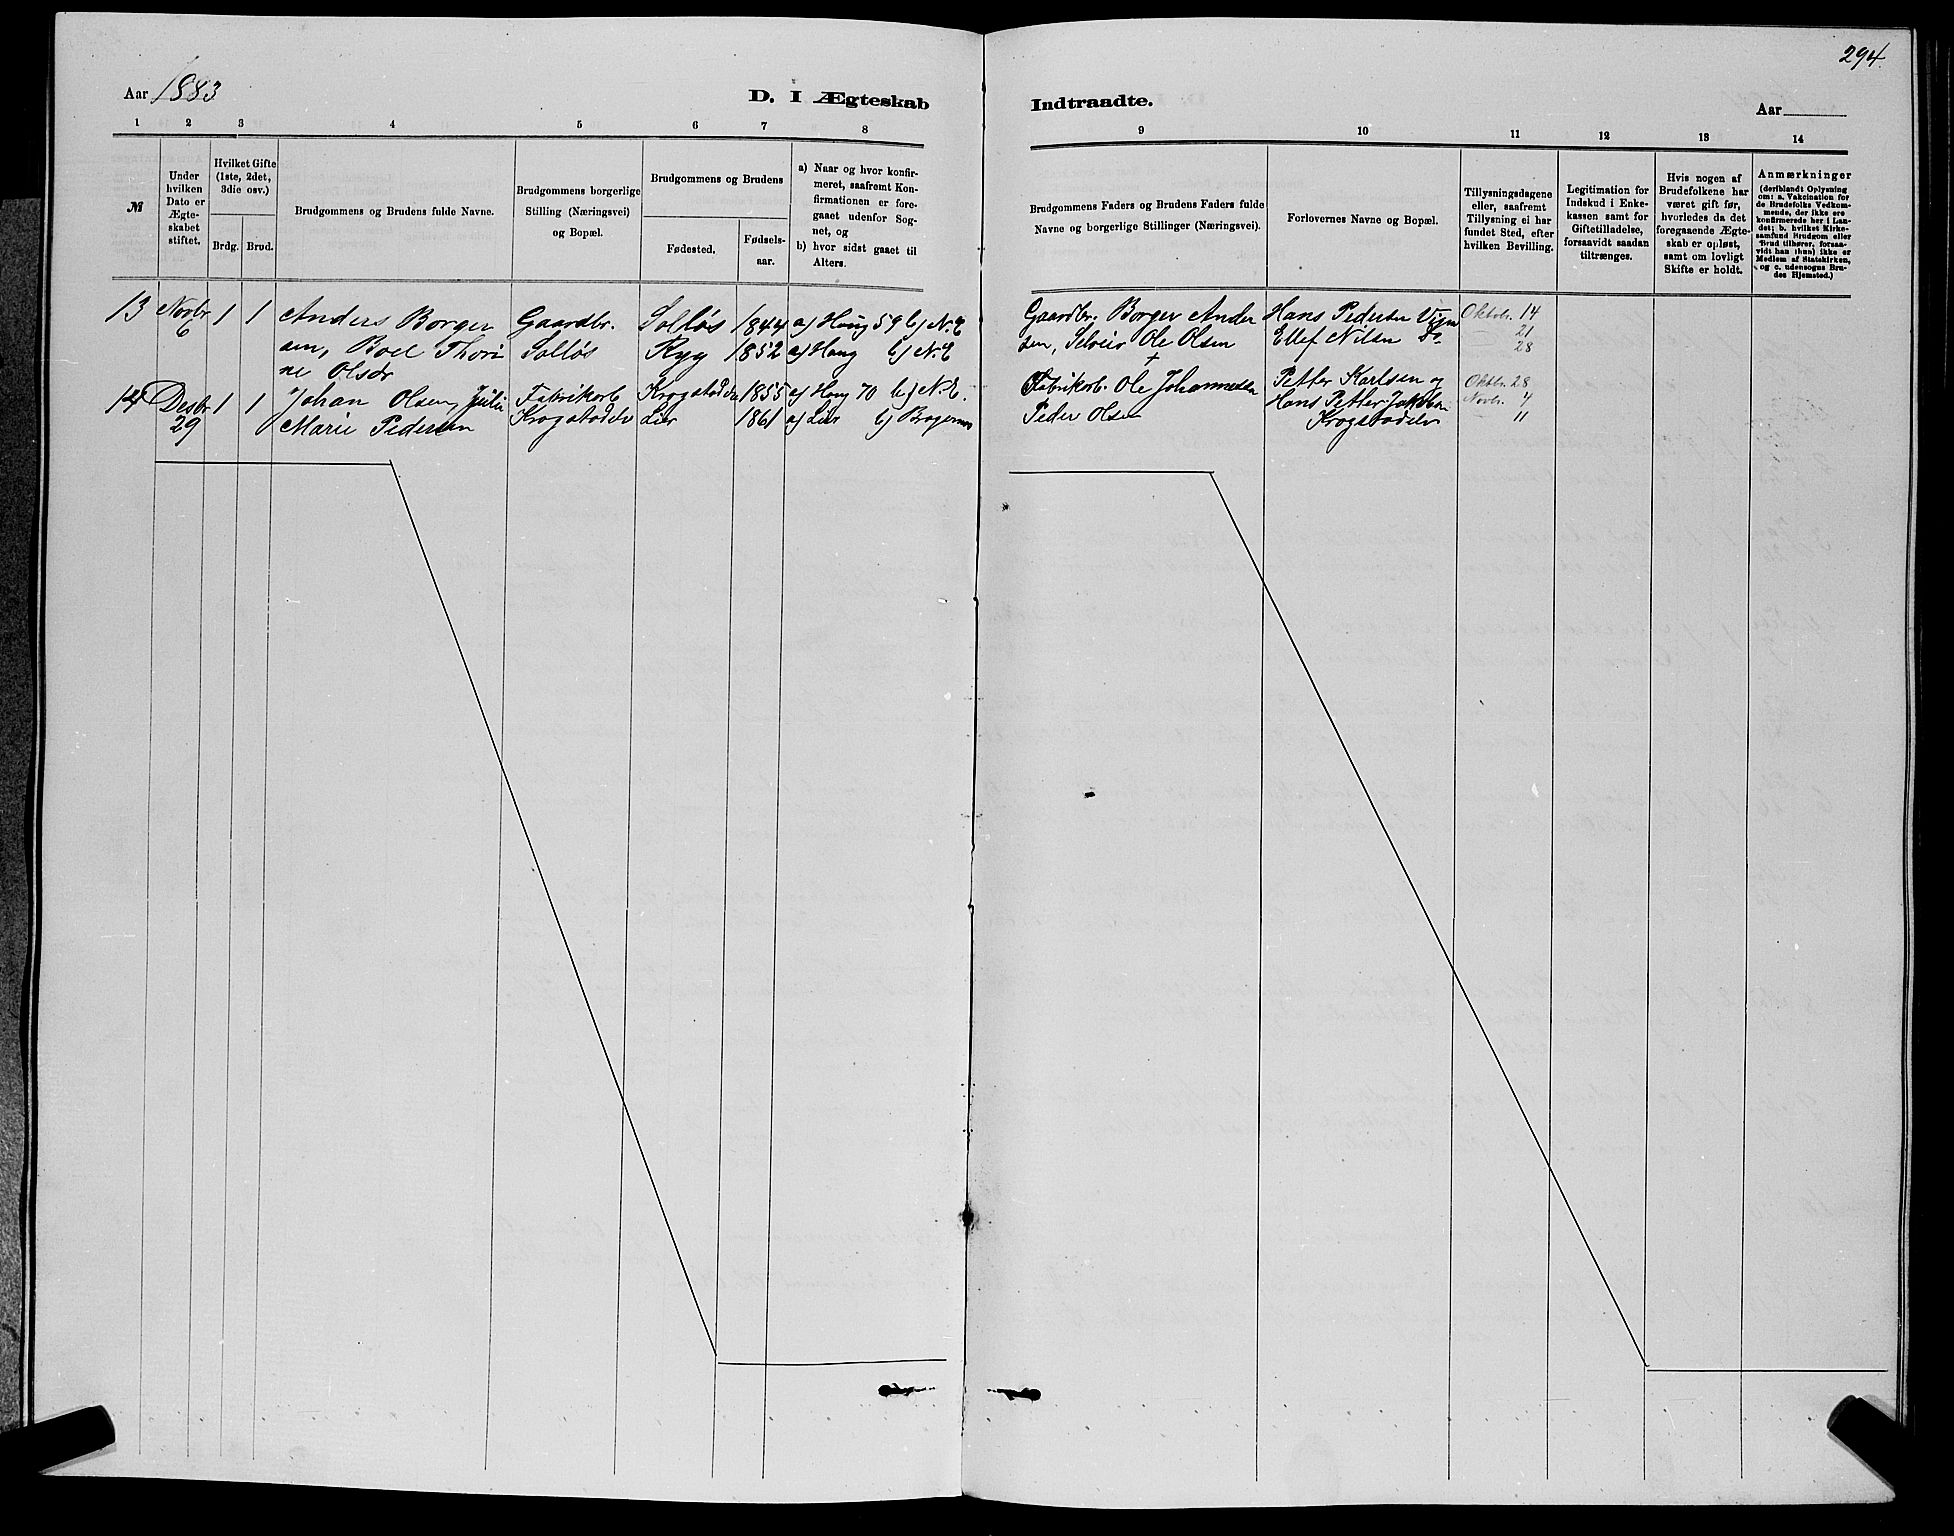 294.
Aar 1883
D. I Ægteskab
Indtraadte.
Aar
1 2 3 4 5 6 7 8
9 10 11 12 13 14
№
Under
hvilken
Dato er
Ægte-
skabet
stiftet.
Hvilket Gifte
(1ste, 2det,
3die osv.)
Brdg. Brud.
Brudgommens og Brudens fulde Navne.
Brudgommens borgerlige
Stilling (Næringsvei)
og Bopæl.
Brudgommens og Brudens
Fødested.
Fødsels-
aar.
a) Naar og hvor konfir-
meret, saafremt Kon-
firmationen er fore-
gaaet udenfor Sog-
net, og
b) hvor sidst gaaet til
Alters.
Brudgommens Faders og Brudens Faders fulde
Navne og borgerlige Stillinger (Næringsvei).
Forlovernes Navne og Bopæl.
Tillysningsdagene
eller, saafremt
Tillysning ei har
fundet Sted, efter
hvilken Bevilling.
Legitimation for
Indskud i Enke-
kassen samt for
Giftetilladelse,
forsaavidt saadan
tiltrænges.
Hvis nogen af
Brudefolkene har
været gift før,
hvorledes da det
foregaaende Ægte-
skab er opløst,
samt om lovligt
Skifte er holdt.
Anmærkninger
(deriblandt Oplysning
om: a. Vakcination for
de Brudefolks Vedkom-
mende, der ikke ere
konfirmerede her i Lan-
det; b. hvilket Kirke-
samfund Brudgom eller
Brud tilhører, forsaa-
vidt han (hun) ikke er
Medlem af Statskirken,
og c. udensogns Bru-
des Hjemsted.)
13 Novbr 1 1 Anders Borger Gaardbr. Solløs 1844 a) Houg 59 b) N.E
6 sen, Boel Thori Solløs Ryg 1852 a) Houg b) N.E
ne Olsdr
14 Desbr 1 1 Johan Olsen, Julie Fabrikarb Krogstadelv 1855 a) Houg 70 b) N.E.
29 Marie Pedersen Krogstadelv Lier 1861 a) Lier b) Bragernes
Gaardbr. Borger Ander Hans Pedersen Oktbr. 14
sen, Selveier Ole Olsen Ellef Nilsen Do 21
† 28
Fabrikarb. Ole Johannesen Petter Karlsen og Oktbr. 28
Peder Olsen Hans Petter Jakobsen Novbr. 4
Krogstadelv 11